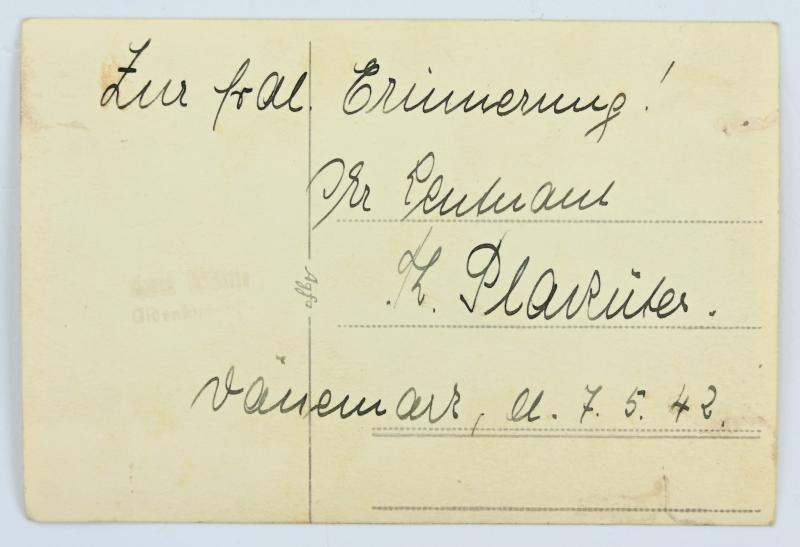 Zur frdl. Erinnerung!
Ihr Leutnant
H. Plaküter.
Dänemark, d. 7.5.42.
Agfa